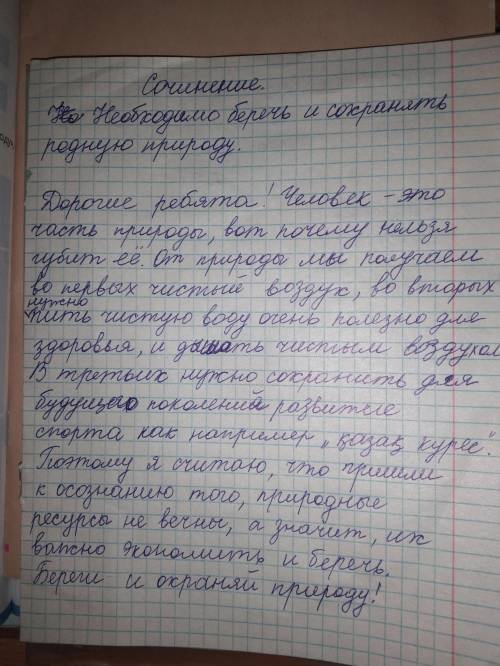 Сочинение.
Необходимо беречь и сохранять
родную природу.
Дорогие ребята! Человек - это
часть природы, вот почему нельзя
губит её. От природы мы получаем
во первых чистый воздух, во вторых
нужно
пить чистую воду очень полезно для
здоровья, и дышать чистым воздухом
В третьих нужно сохранить для
будущего поколения развитие
спорта как например „қазақ курес".
Поэтому я считаю, что пришли
к осознанию того, природные
ресурсы не вечны, а значит, их
важно экономить и беречь.
Береги и охраняй природу!